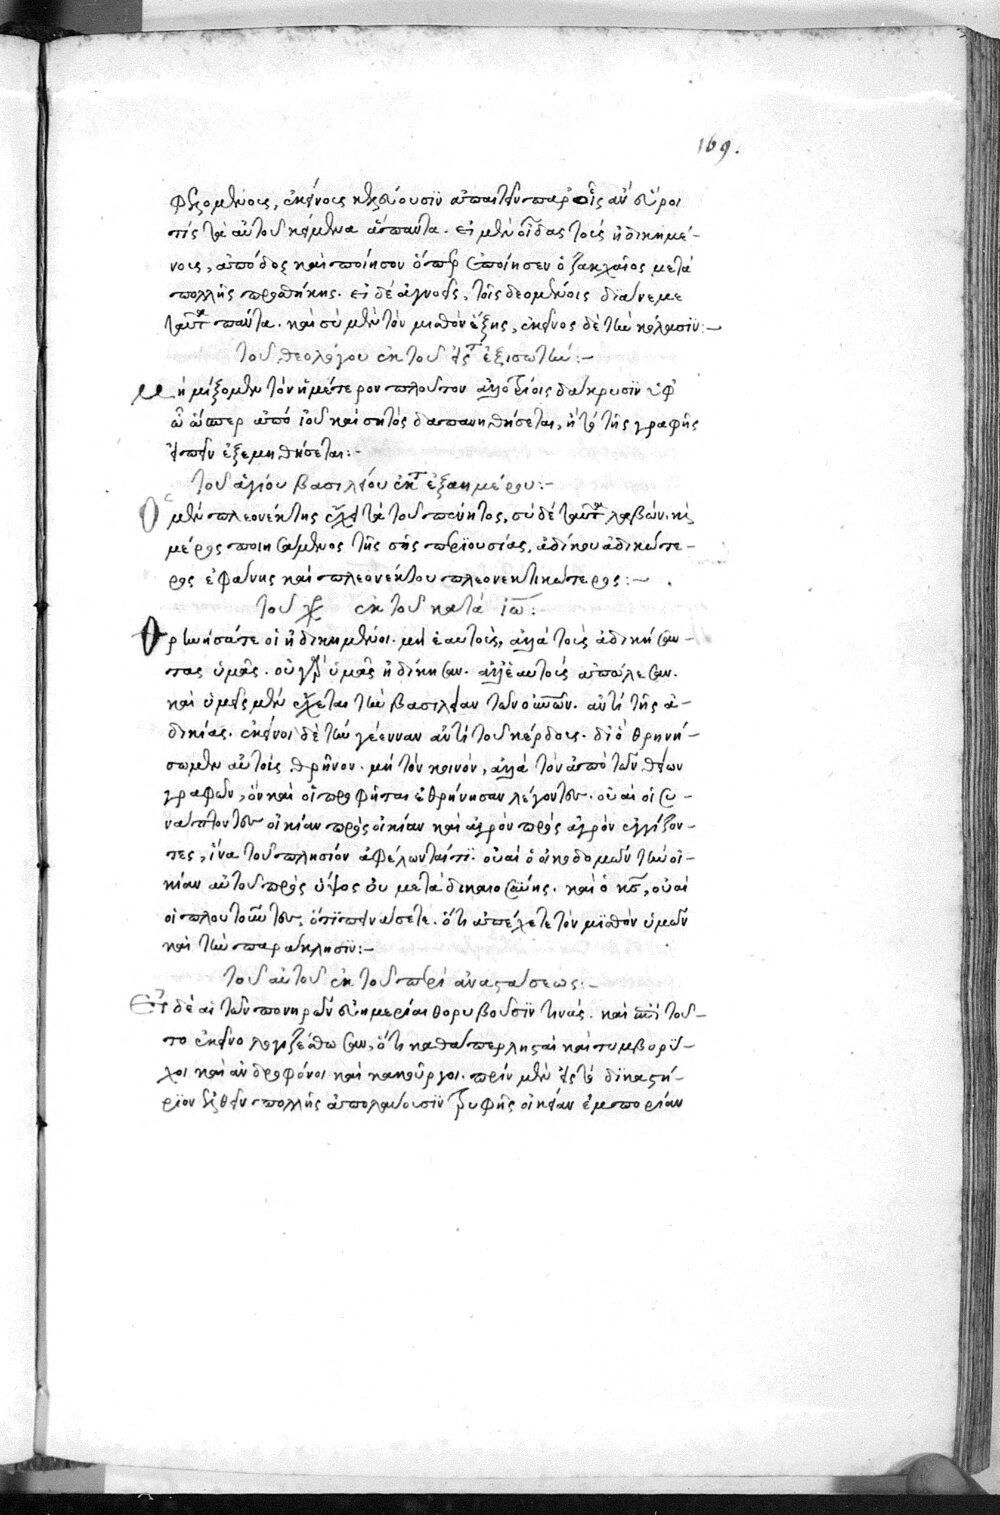 169.
φθεγξομένοις, ἐκείνοις κελεύουσιν ἀπαιτεῖν παρ' οἷς ἂν εὕροι
τίς τὰ αὐτοῦ κείμενα ἅπαντα. εἰ μὲν οἶδας τοὺς ἠδικημέ-
νους, ἀπόδος καὶ ποίησον ὅπερ ἐποίησεν ὁ ζακχαῖος μετὰ
πολλῆς προσθήκης. εἰ δὲ ἀγνοεῖς, τοῖς δεομένοις διάνεμε
ταῦτα πάντα. καὶ σὺ μὲν τὸν μισθὸν ἕξης, ἐκεῖνος δὲ τὴν κόλασιν:-
τοῦ θεολόγου ἐκ τοῦ εἰς τ ἐξισωτήν:-
Μὴ μίξομεν τὸν ἡμέτερον πλοῦτον ἀλλοτρίοις δάκρυσιν ὑφ'
ὧν ὥσπερ ἀπὸ ἰοῦ καὶ σητὸς δαπανηθήσεται, ἢ τὸ τῆς γραφῆς
εἰπεῖν ἐξεμηθήσεται:-
τοῦ ἁγίου βασιλείου ἐκ τ ἑξαημέρου:-
Ὁ μὲν πλεονέκτης εἶχε τὰ τοῦ πένητος, σὺ δὲ ταῦτα λαβὼν καὶ
μέρος ποιησάμενος τῆς σῆς περιουσίας, ἀδίκου ἀδικώτε-
ρος ἐφάνης καὶ πλεονέκτου πλεονεκτικώτερος:-
τοῦ χρ ἐκ τοῦ κατὰ ἰω:
Θρηνήσατε οἱ ἠδικημένοι. μὴ ἑαυτοὺς, ἀλλὰ τοὺς ἀδικήσαν-
τας ὑμᾶς. οὐ γὰρ ὑμᾶς ἠδίκησαν. ἀλλ' ἑαυτοὺς ἀπώλεσαν.
καὶ ὑμεῖς μὲν ἔχετε τὴν βασιλείαν τῶν οὐνῶν. ἀντὶ τῆς ἀ-
δικίας. ἐκεῖνοι δὲ τὴν γέενναν ἀντὶ τοῦ κέρδους. διὸ θρηνή-
σωμεν αὐτοὺς θρῆνον. μὴ τὸν κοινόν, ἀλλὰ τὸν ἀπὸ τῶν θείων
γραφῶν, ὃν καὶ οἱ προφῆται ἐθρήνησαν λέγοντες. οὐαὶ οἱ συ-
νάπτοντες οἰκίαν πρὸς οἰκίαν καὶ ἀγρὸν πρὸς ἀγρὸν ἐγγίζον-
τες, ἵνα τοῦ πλησίον ἀφέλωνταί τι. οὐαὶ ὁ οἰκοδομῶν τὴν οἰ-
κίαν αὐτοῦ πρὸς ὕψος οὐ μετὰ δικαιοσύνης. καὶ ὁ κς, οὐαὶ
οἱ πλουτοῦντες, ὅτι πεινάσετε. ὅτι ἀπέχετε τὸν μισθὸν ὑμῶν
καὶ τὴν παράκλησιν:-
τοῦ αὐτοῦ ἐκ τοῦ περὶ ἀναστάσεως:-
Εἰ δὲ αἱ τῶν πονηρῶν εὐημερίαι θορυβοῦσίν τινάς. καὶ ἐπὶ τού-
το ἐκεῖνο λογιζέσθωσαν, ὅτι καθάπερ λῃσταὶ καὶ τυμβορύ-
χοι καὶ ἀνδροφόνοι καὶ κακοῦργοι. πρὶν μὲν εἰς τὸ δικαστή-
ριον ἐλθεῖν πολλῆς ἀπολαύουσιν τρυφῆς οἰκείαν ἐμπορίαν